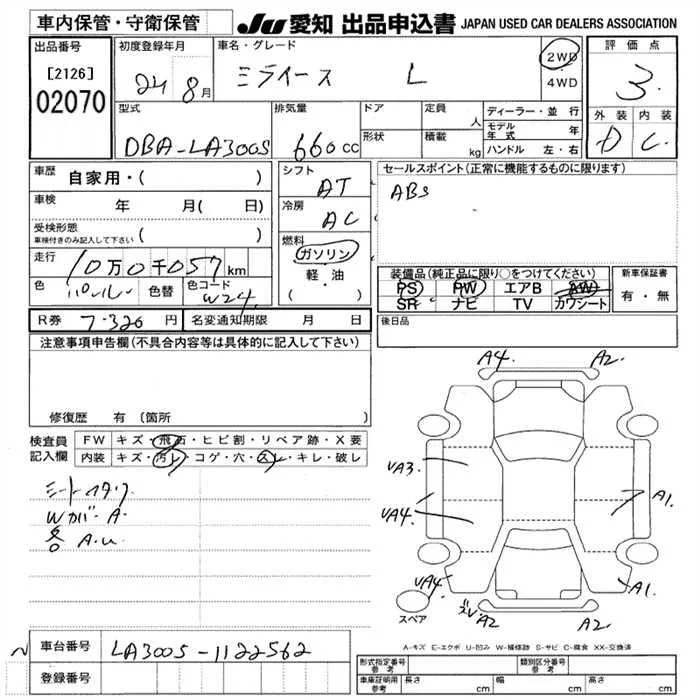 車内保管・守衛保管
JU 愛知 出品申込書 JAPAN USED CAR DEALERS ASSOCIATION
出品番号
[2126]
02070
初度登録年月
24 8月
車名・グレード
ミライース L
2WD
4WD
評価点
3
外装 内装
D C
型式
DBA-LA300S
排気量
660cc
ドア
形状
定員 人
積載 kg
ディーラー・並行
モデル年式 年
ハンドル 左・右
車歴 自家用・( )
車検 年 月( 日)
受検形態
車検付きのみ記入して下さい
走行 10万0千057km
色 パール 色替 色コード W24
シフト AT
冷房 AC
燃料
ガソリン
軽・油
( )
セールスポイント(正常に機能するものに限ります)
ABS
装備品(純正品に限り○をつけてください)
PS PW エアB AW
SR ナビ TV カワシート
新車保証書
有・無
R券 7.320円 名変通知期限 月 日
後日品
注意事項申告欄(不具合内容等は具体的に記入して下さい)
修復歴 有(箇所 )
検査員
記入欄
FW キズ・飛石・ヒビ割・リペア跡・X要
内装 キズ・汚レ・コゲ・穴・スレ・キレ・破レ
Wカバ-A
各 A.U
A4 A2
UA3
UA4 A1
UA4 A1
A2 A2
スペア
A-キズ E-エクボ U-凹み W-補修跡 S-サビ C-腐食 XX-交換済
車台番号 LA300S-1122562
登録番号
形式指定番号 参考
類別区分番号 参考
車庫証明用 参考 長さ cm 幅 cm 高さ cm